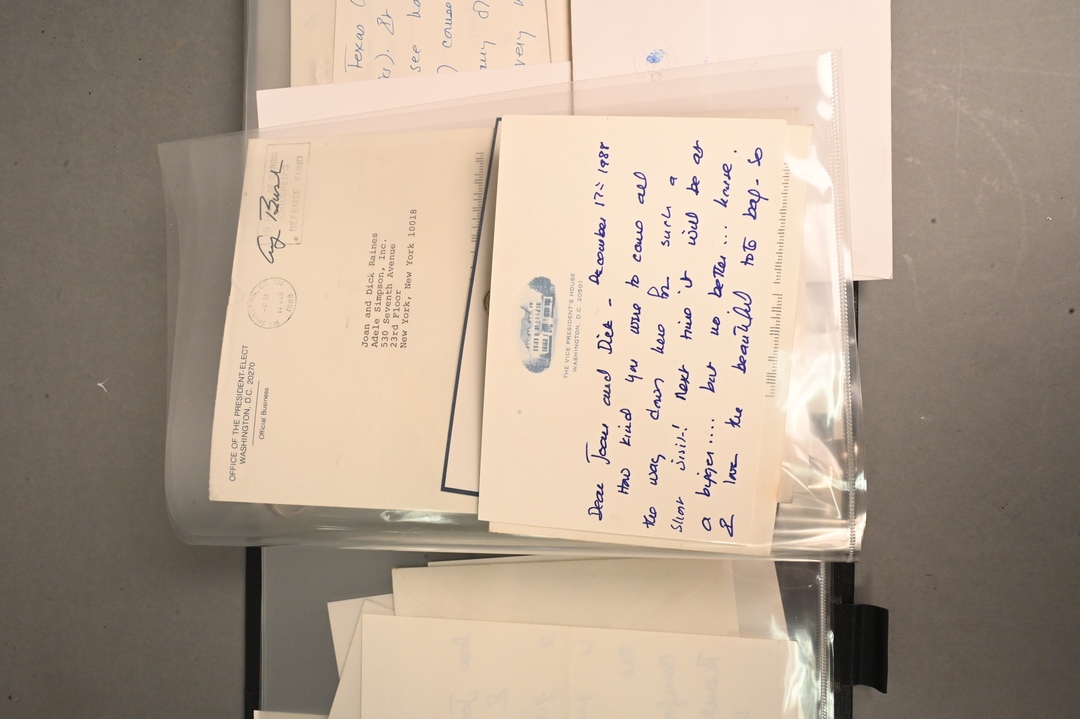 Texas
see
) couse
very
OFFICE OF THE PRESIDENT-ELECT
WASHINGTON, D.C. 20270
Official Business
1989
Bush
DEFENSE FUND
Joan and Dick Raines
Adele Simpson, Inc.
530 Seventh Avenue
23rd Floor
New York, New York 10018
THE VICE PRESIDENT'S HOUSE
WASHINGTON, D.C. 20501
Dear Joan and Dick - December 17th 1988
How kind you were to come all
the way down here for such a
short visit! Next time it will be at
a bigger.... but no better... house.
I love the beautiful tote bag - so